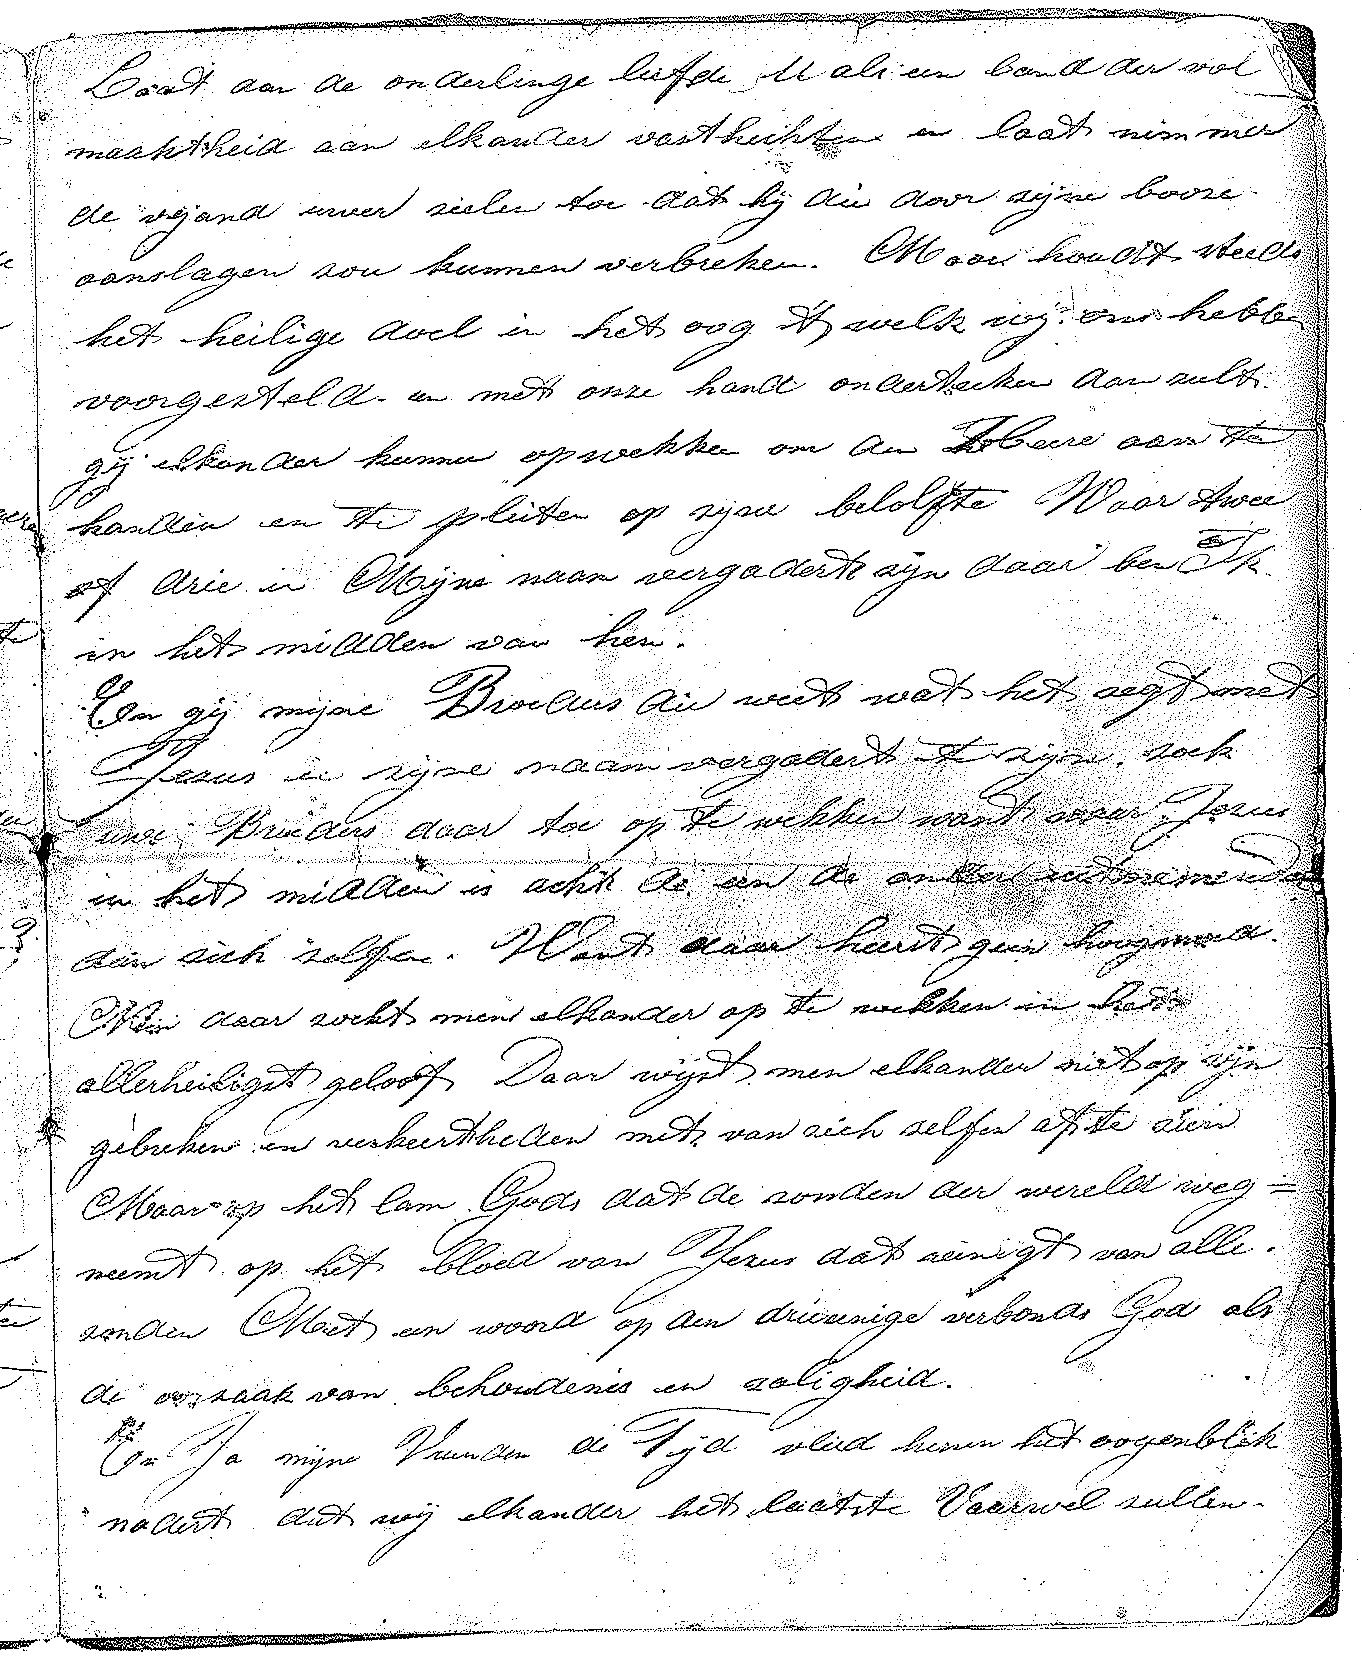 Laat dan de onderlinge liefde U als een band der vol
maaktheid aan elkander vasthechten en laat nimmer
de vijand uwer zielen toe dat hij die door zijne booze
aanslagen zou kunnen verbreken. Maar houdt steeds
het heilige doel in het oog 't welk wij ons hebben
voorgesteld en met onze hand onderteeken dan zult
gij elkander kunnen opwekken om den Heere aan te
handen en te pleiten op zijne belofte Waar twee
of drie in Mijne naam vergadert zijn daar ben Ik
in het midden van hen.
En gij mijne Broeders die weet wat het zegt met
Jezus in zijne naam vergadert te zijn, zoek
uwe Broeders daar toe op te wekken want waar Jezus
in het midden is acht de een de ander uitnemender
dan zich zelfen. Want daar heerst geen hoogmoed.
Nein daar zoekt men elkander op te wekken in het
allerheiligst geloof Daar wijst men elkander niet op zijn
gebreken en verkeertheden met van zich zelfen af te zien
Maar op het lam Gods dat de zonden der wereld weg=
neemt op het bloed van Jezus dat reinigt van alle
zonden Met een woord op den drieenige verbonds God als
de oorzaak van behoudenis en zaligheid.
En Ja mijne Vrienden de Tijd vlied henen het oogenblik
nadert dat wij elkander het laatste Vaarwel zullen